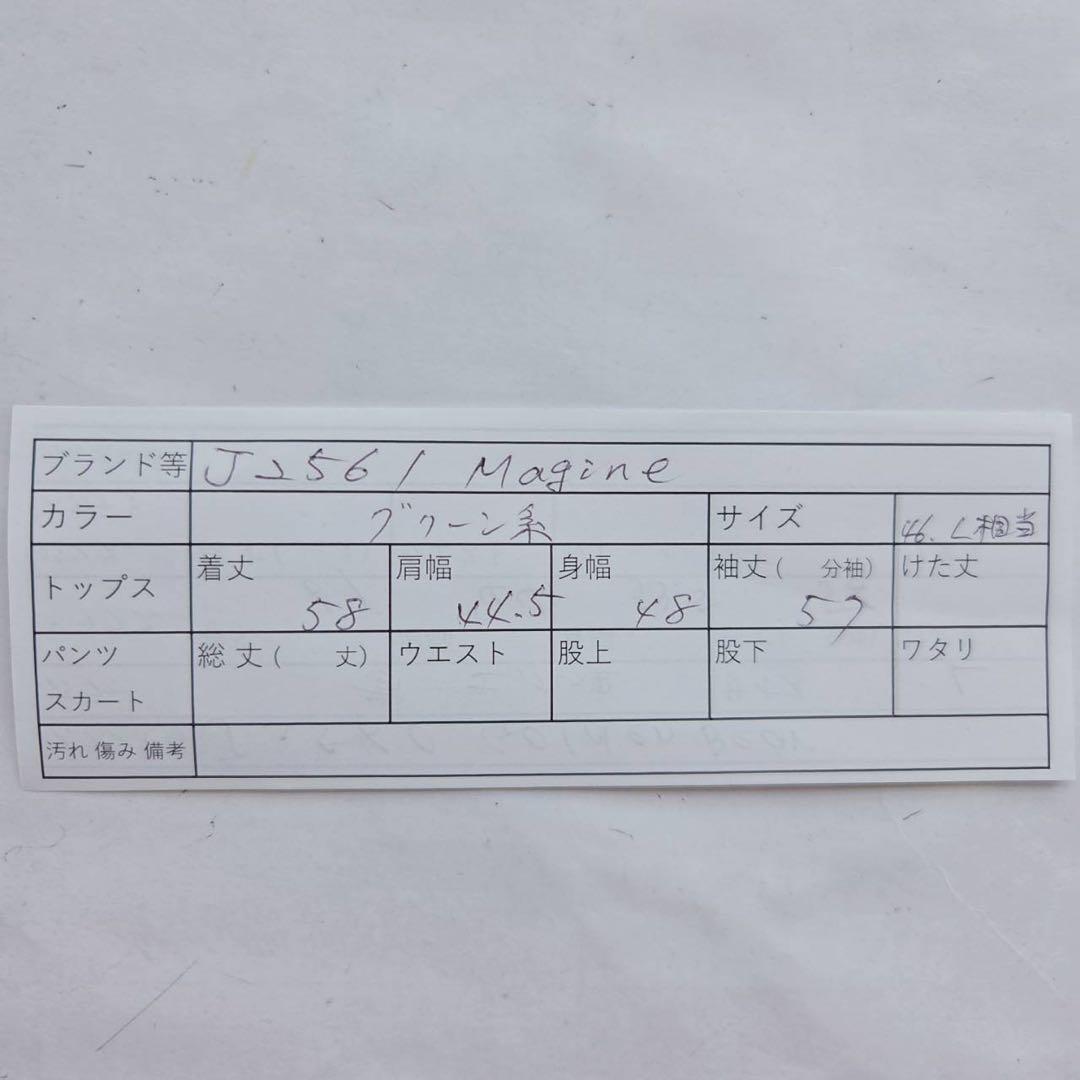 ブランド等 J2561 Magine
カラー グリーン系 サイズ 46.L相当
トップス 着丈 58 肩幅 44.5 身幅 48 袖丈( 分袖) 57 けた丈
パンツ スカート 総丈( 丈) ウエスト 股上 股下 ワタリ
汚れ 傷み 備考